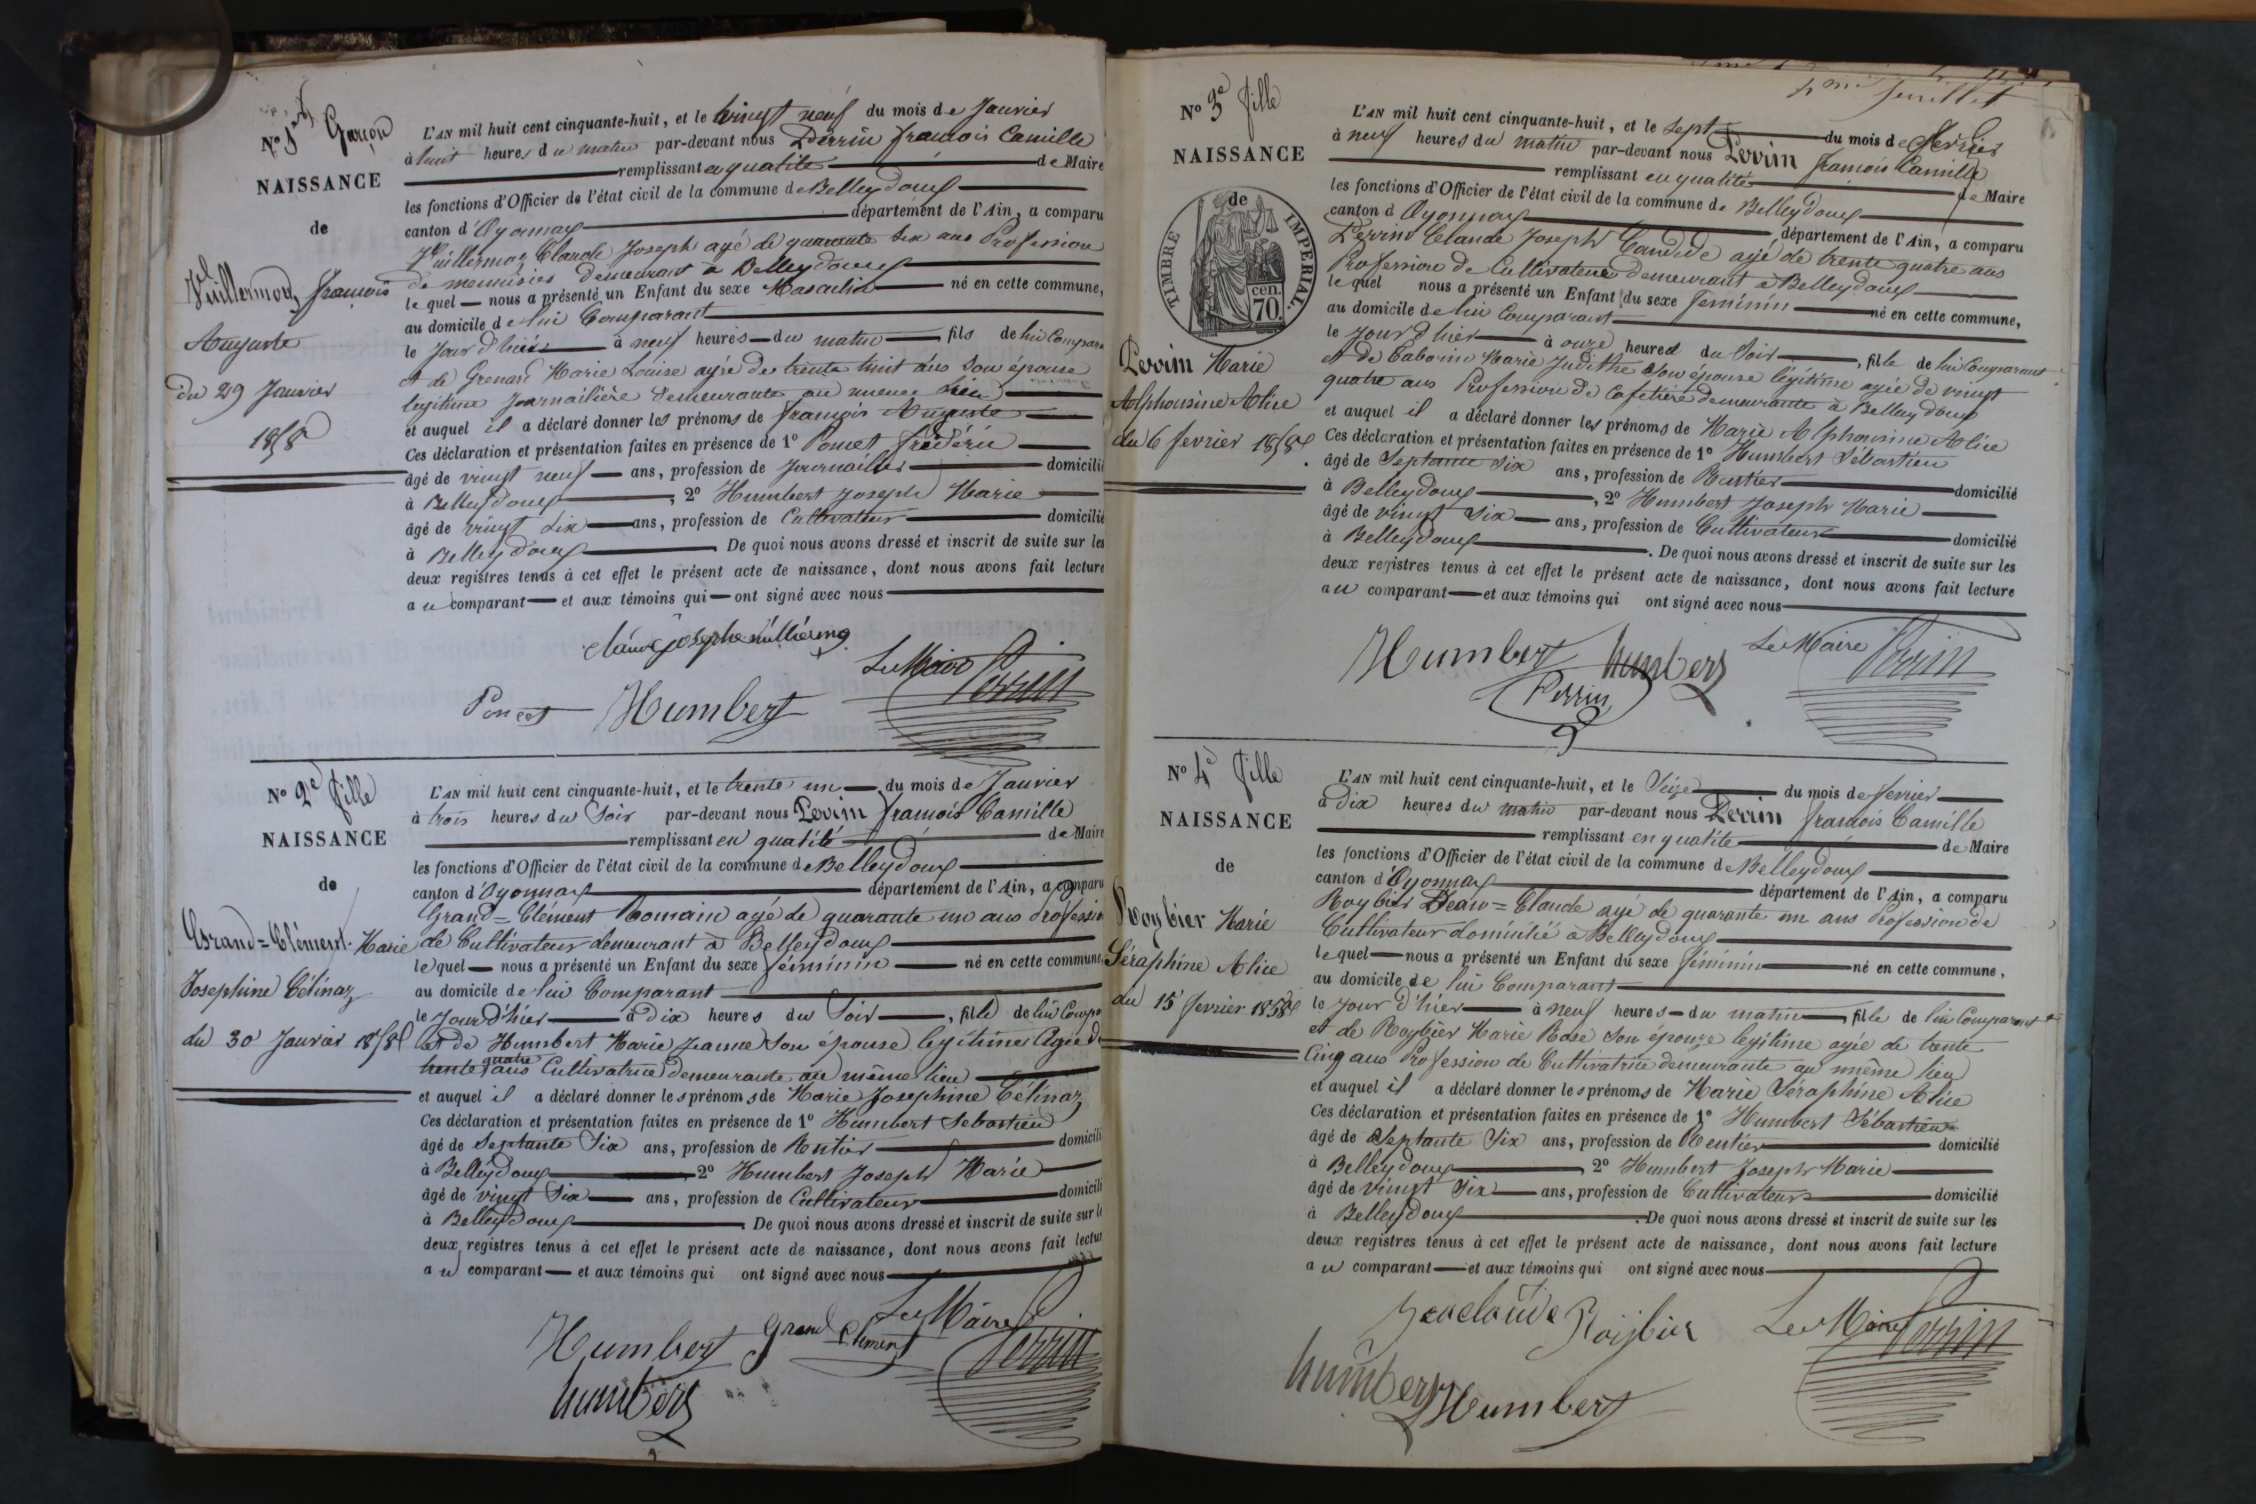 N° 1er Garçon
NAISSANCE
de
Vuillermoz François
Auguste
du 29 Janvier
1858
L'AN mil huit cent cinquante-huit, et le vingt neuf du mois de Janvier
à huit heures du matin par-devant nous Perrin françois Camille
remplissant en qualité de Maire
les fonctions d'Officier de l'état civil de la commune de Belleydoux
canton d'Oyonnax département de l'Ain, a comparu
Vuillermoz Claude Joseph agé de quarante six ans Profession
de menuisier demeurant à Belleydoux
lequel nous a présenté un Enfant du sexe Masculin né en cette commune,
au domicile de lui Comparant
le Jour d'hier à neuf heures du matin fils de lui Compara
et de Grenard Marie Louise agée de trente huit ans son épouse
legitime Journalière demeurante au meme Lieu
et auquel il a déclaré donner les prénoms de françois Auguste
Ces déclaration et présentation faites en présence de 1° Poncet fréderic
âgé de vingt neuf ans, profession de Journalier domicilié
à Belleydoux, 2° Humbert Joseph Marie
âgé de vingt six ans, profession de Cultivateur domicilié
à Belleydoux. De quoi nous avons dressé et inscrit de suite sur les
deux registres tenus à cet effet le présent acte de naissance, dont nous avons fait lecture
au comparant et aux témoins qui ont signé avec nous
Le Maire Perrin
Poncet Humbert
N° 2e fille
NAISSANCE
de
Grand=Clément Marie
Josephine Célinaz
du 30 Janvier 1858
L'AN mil huit cent cinquante-huit, et le trente un du mois de Janvier
à trois heures du Soir par-devant nous Perrin françois Camille
remplissant en qualité de Maire
les fonctions d'Officier de l'état civil de la commune de Belleydoux
canton d'Oyonnax département de l'Ain, a comparu
Grand=Clément Romain agé de quarante un ans Professio
de Cultivateur demeurant à Belleydoux
lequel nous a présenté un Enfant du sexe féminin né en cette commune
au domicile de lui Comparant
le Jour d'hier à dix heures du Soir, fille de lui Compa
et de Humbert Marie Jeanne Son épouse legitime Agée de
trente quatre ans Cultivatrice demeurante au même lieu
et auquel il a déclaré donner les prénoms de Marie Josephine Célinaz
Ces déclaration et présentation faites en présence de 1° Humbert Sebastien
âgé de septante Six ans, profession de Rentier domicili
à Belleydoux 2° Humbert Joseph Marie
âgé de vingt Six ans, profession de Cultivateur domicili
à Belleydoux. De quoi nous avons dressé et inscrit de suite sur le
deux registres tenus à cet effet le présent acte de naissance, dont nous avons fait lectur
au comparant et aux témoins qui ont signé avec nous
Humbert Grand Clement Le Maire Perrin
humbert
feuillet
N° 3e fille
NAISSANCE
de
TIMBRE IMPÉRIAL.
cen.
70.
Perrin Marie
Alphonsine Alice
du 6 fevrier 1858
L'AN mil huit cent cinquante-huit, et le sept du mois de Février
à neuf heures du matin par-devant nous Perrin françois Camille
remplissant en qualité de Maire
les fonctions d'Officier de l'état civil de la commune de Belleydoux
canton d'Oyonnax département de l'Ain, a comparu
Perrin Claude Joseph Candide agé de trente quatre ans
Profession de Cultivateur demeurant à Belleydoux
lequel nous a présenté un Enfant du sexe feminin né en cette commune,
au domicile de lui Comparant
le Jour d'hier à onze heures du Soir, fille de lui Comparant
et de Marie Judithe Son épouse légitime agée de vingt
quatre ans Profession de Cafetière demeurante à Belleydoux
et auquel il a déclaré donner les prénoms de Marie Alphonsine Alice
Ces déclaration et présentation faites en présence de 1° Humbert Sébastien
âgé de Septante six ans, profession de Rentier domicilié
à Belleydoux, 2° Humbert Joseph Marie
âgé de vingt six ans, profession de Cultivateur domicilié
à Belleydoux. De quoi nous avons dressé et inscrit de suite sur les
deux registres tenus à cet effet le présent acte de naissance, dont nous avons fait lecture
au comparant et aux témoins qui ont signé avec nous
Humbert humbert Le Maire Perrin
Perrin
N° 4e fille
NAISSANCE
de
Roybier Marie
Séraphine Alice
du 15 fevrier 1858
L'AN mil huit cent cinquante-huit, et le Seize du mois de fevrier
à Dix heures du matin par-devant nous Perrin françois Camille
remplissant en qualité de Maire
les fonctions d'Officier de l'état civil de la commune de Belleydoux
canton d'Oyonnax département de l'Ain, a comparu
Roybier Jean=Claude agé de quarante un ans Profession de
Cultivateur domicilié à Belleydoux
lequel nous a présenté un Enfant du sexe féminin né en cette commune,
au domicile de lui Comparant
le Jour d'hier à neuf heures du matin, fille de lui Comparant
et de Roybier Marie Rose Son épouse legitime agée de trente
Cinq ans Profession de Cultivatrice demeurante au même lieu
et auquel il a déclaré donner les prénoms de Marie Séraphine Alice
Ces déclaration et présentation faites en présence de 1° Humbert Sébastien
âgé de Septante Six ans, profession de Rentier domicilié
à Belleydoux, 2° Humbert Joseph Marie
âgé de vingt Six ans, profession de Cultivateur domicilié
à Belleydoux. De quoi nous avons dressé et inscrit de suite sur les
deux registres tenus à cet effet le présent acte de naissance, dont nous avons fait lecture
au comparant et aux témoins qui ont signé avec nous
Roijbier Le Maire Perrin
humbert Humbert